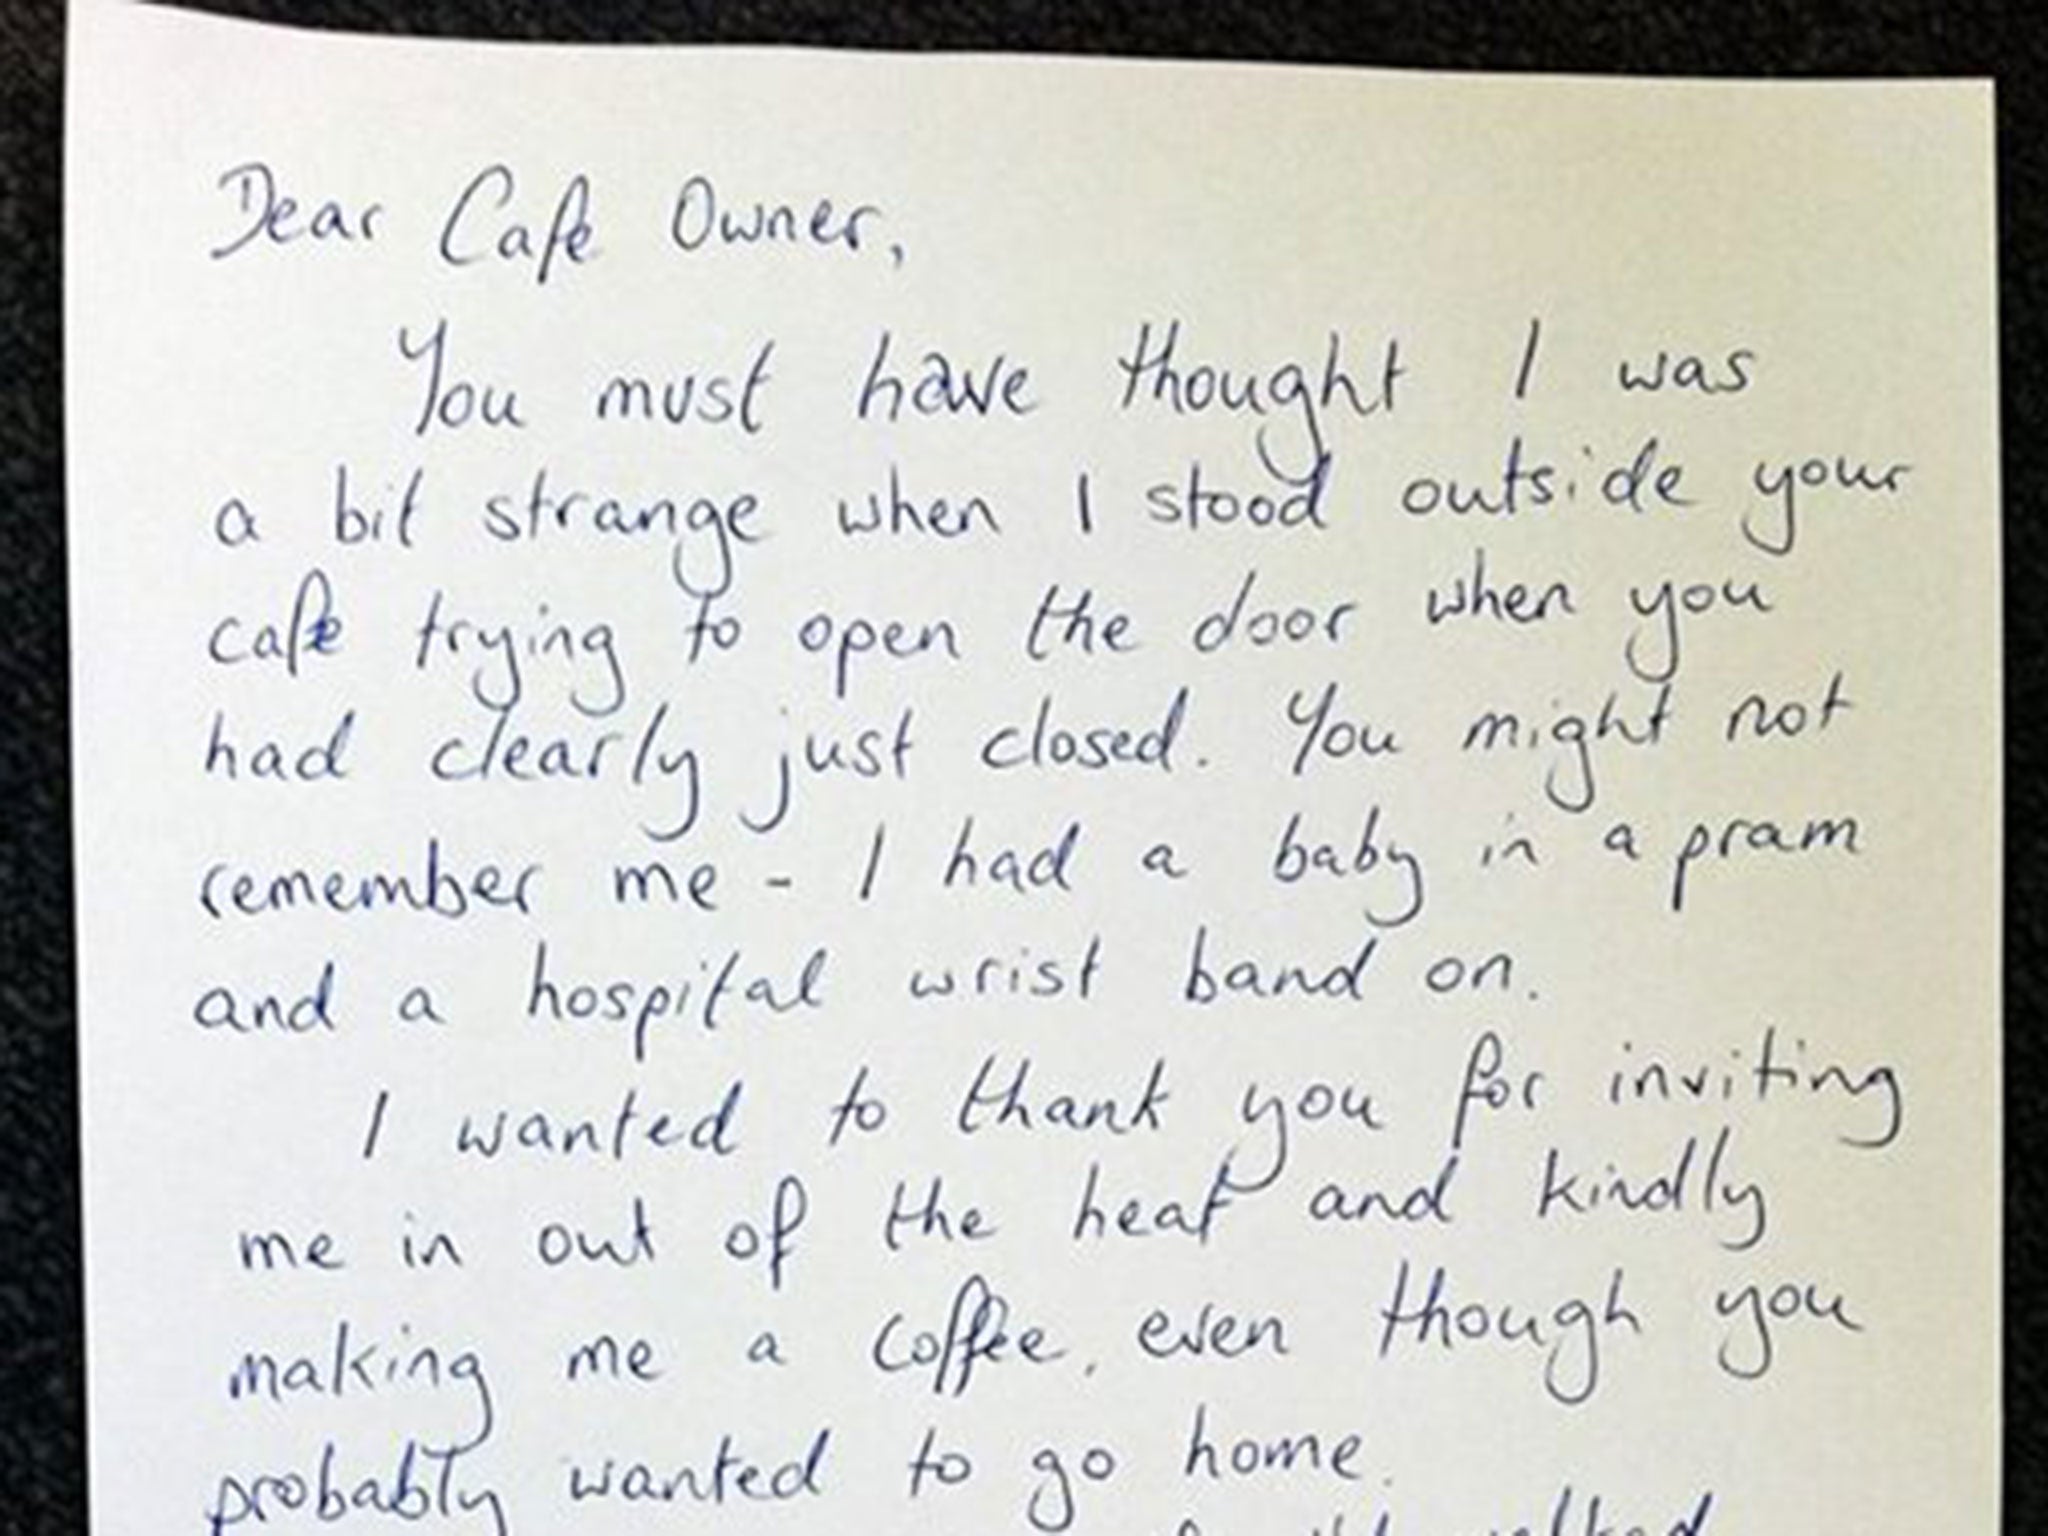 Dear Café Owner,
You must have thought I was
a bit strange when I stood outside your
cafe trying to open the door when you
had clearly just closed. You might not
remember me - I had a baby in a pram
and a hospital wrist band on.
I wanted to thank you for inviting
me in out of the heat and kindly
making me a coffee, even though you
probably wanted to go home.